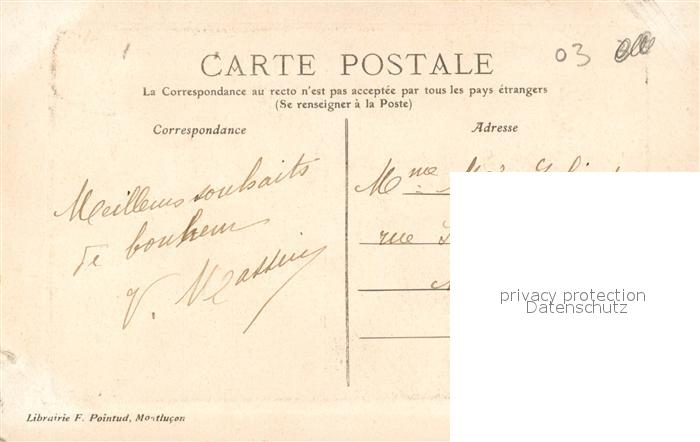 03
CARTE POSTALE
La Correspondance au recto n'est pas acceptée par tous les pays étrangers
(Se renseigner à la Poste)
Correspondance
Adresse
Meilleurs souhaits
de bonheur
V. Massin
Mme
rue
privacy protection
Datenschutz
Librairie F. Pointud, Montluçon